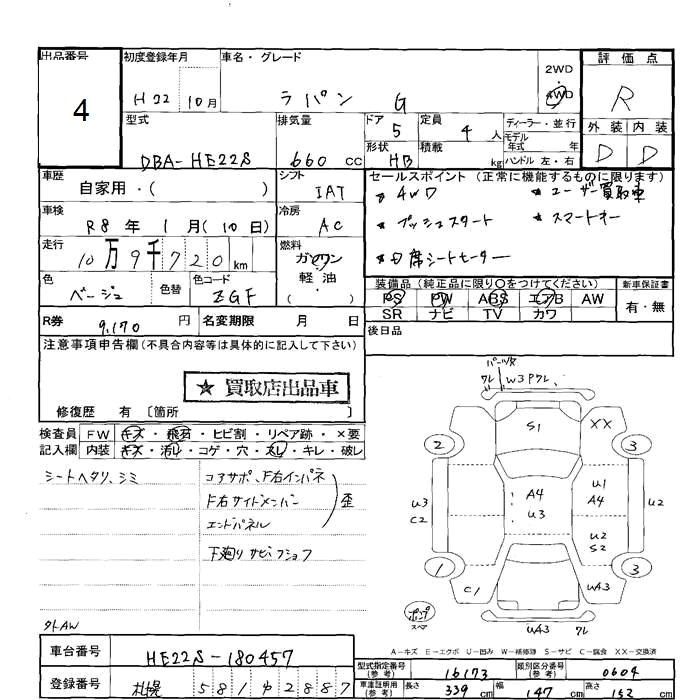 出品番号 初度登録年月 車名・グレード 2WD 4WD 評価点
4 H22 10月 ラパン G R
型式 排気量 ドア 定員 ディーラー・並行 外装 内装
DBA-HE22S 660 cc 5 4 人 モデル年式 年 D D
形状 HB 積載 kg ハンドル 左・右
車歴 自家用・( ) シフト IAT セールスポイント (正常に機能するものに限ります)
車検 R8 年 1 月(10日) 冷房 AC * 4WD * ユーザー買取車
* プッシュスタート * スマートキー
走行 10万9千720 km 燃料 ガソリン・軽油・( ) * D席シートヒーター
色 ベージュ 色替 色コード ZGF
装備品(純正品に限り○をつけてください) 新車保証書
PS PW ABS エアB AW 有・無
SR ナビ TV カワ
R券 9,170 円 名変期限 月 日 後日品
注意事項申告欄(不具合内容等は具体的に記入して下さい)
★買取店出品車
修復歴 有 〔箇所 〕
検査員 FW キズ・飛石・ヒビ割・リペア跡・×要
記入欄 内装 キズ・汚レ・コゲ・穴・スレ・キレ・破レ
シートヘタリ、シミ コアサポ、F右インパネ
F右サイドメンバー 歪
エンドパネル
下廻りサビフショク
外AW
パーツ欠
ワレ W3Pワレ、
S1 XX
2 3
U3 C2 A4 U3 U1 A4 U2
U2 S2
1 3
C1 UA3
ポンプ スペア UA3 ワレ
A-キズ E-エクボ U-凹み W-補修跡 S-サビ C-腐食 XX-交換済
車台番号 HE22S-180457
型式指定番号(参考) 16173 類別区分番号(参考) 0604
登録番号 札幌 581 や 2887
車庫証明用(参考) 長さ 339 cm 幅 147 cm 高さ 152 cm